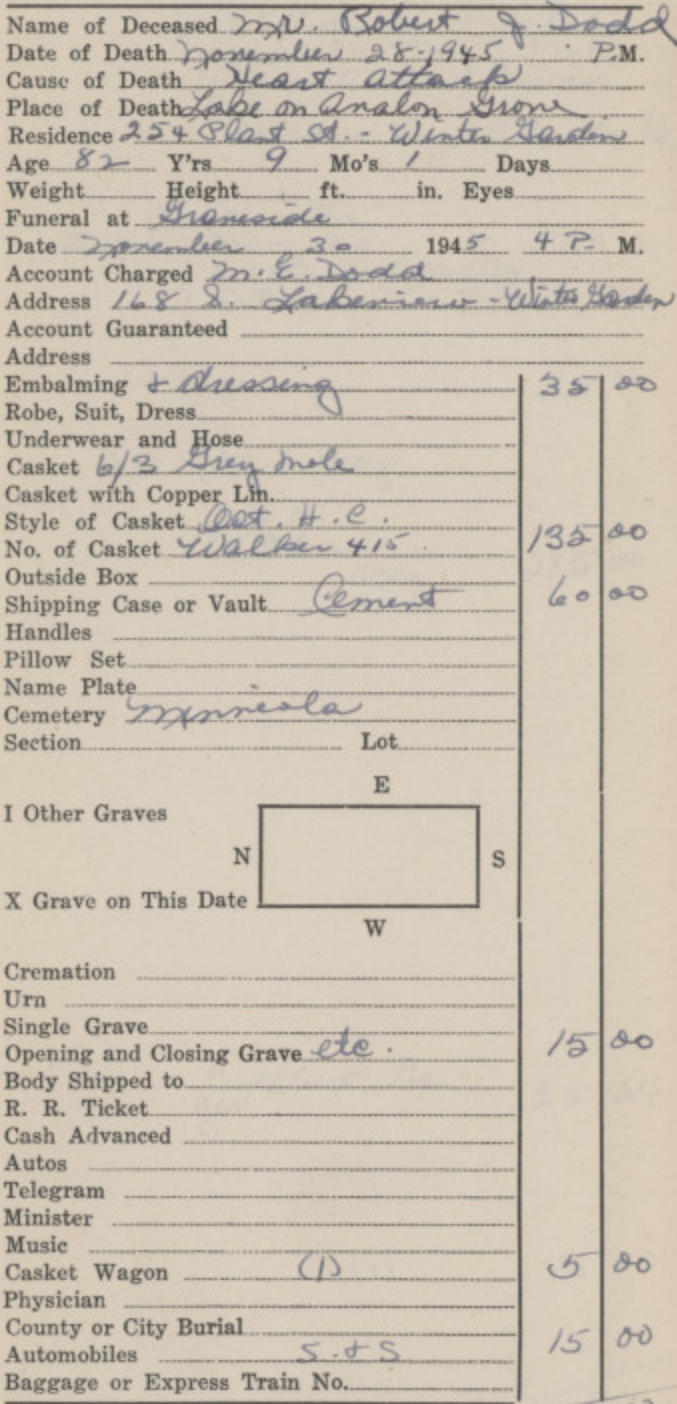 Name of Deceased Mr. Robert J. Dodd
Date of Death November 28-1945 P.M.
Cause of Death Heart attack
Place of Death Lake on Avalon Grove
Residence 254 Plant St. - Winter Garden
Age 82 Y'rs 9 Mo's 1 Days
Weight Height ft. in. Eyes
Funeral at Graveside
Date November 30 1945 4 P. M.
Account Charged M. E. Dodd
Address 168 S. Lakeview - Winter Garden
Account Guaranteed
Address
Embalming & dressing 35 00
Robe, Suit, Dress
Underwear and Hose
Casket 6/3 Grey mole
Casket with Copper Lin.
Style of Casket Oct. H. C.
No. of Casket Walker 415 135 00
Outside Box
Shipping Case or Vault Cement 60 00
Handles
Pillow Set
Name Plate
Cemetery Minneola
Section Lot
E
I Other Graves
N S
X Grave on This Date
W
Cremation
Urn
Single Grave
Opening and Closing Grave etc. 15 00
Body Shipped to
R. R. Ticket
Cash Advanced
Autos
Telegram
Minister
Music
Casket Wagon (1) 5 00
Physician
County or City Burial
Automobiles S. & S 15 00
Baggage or Express Train No.